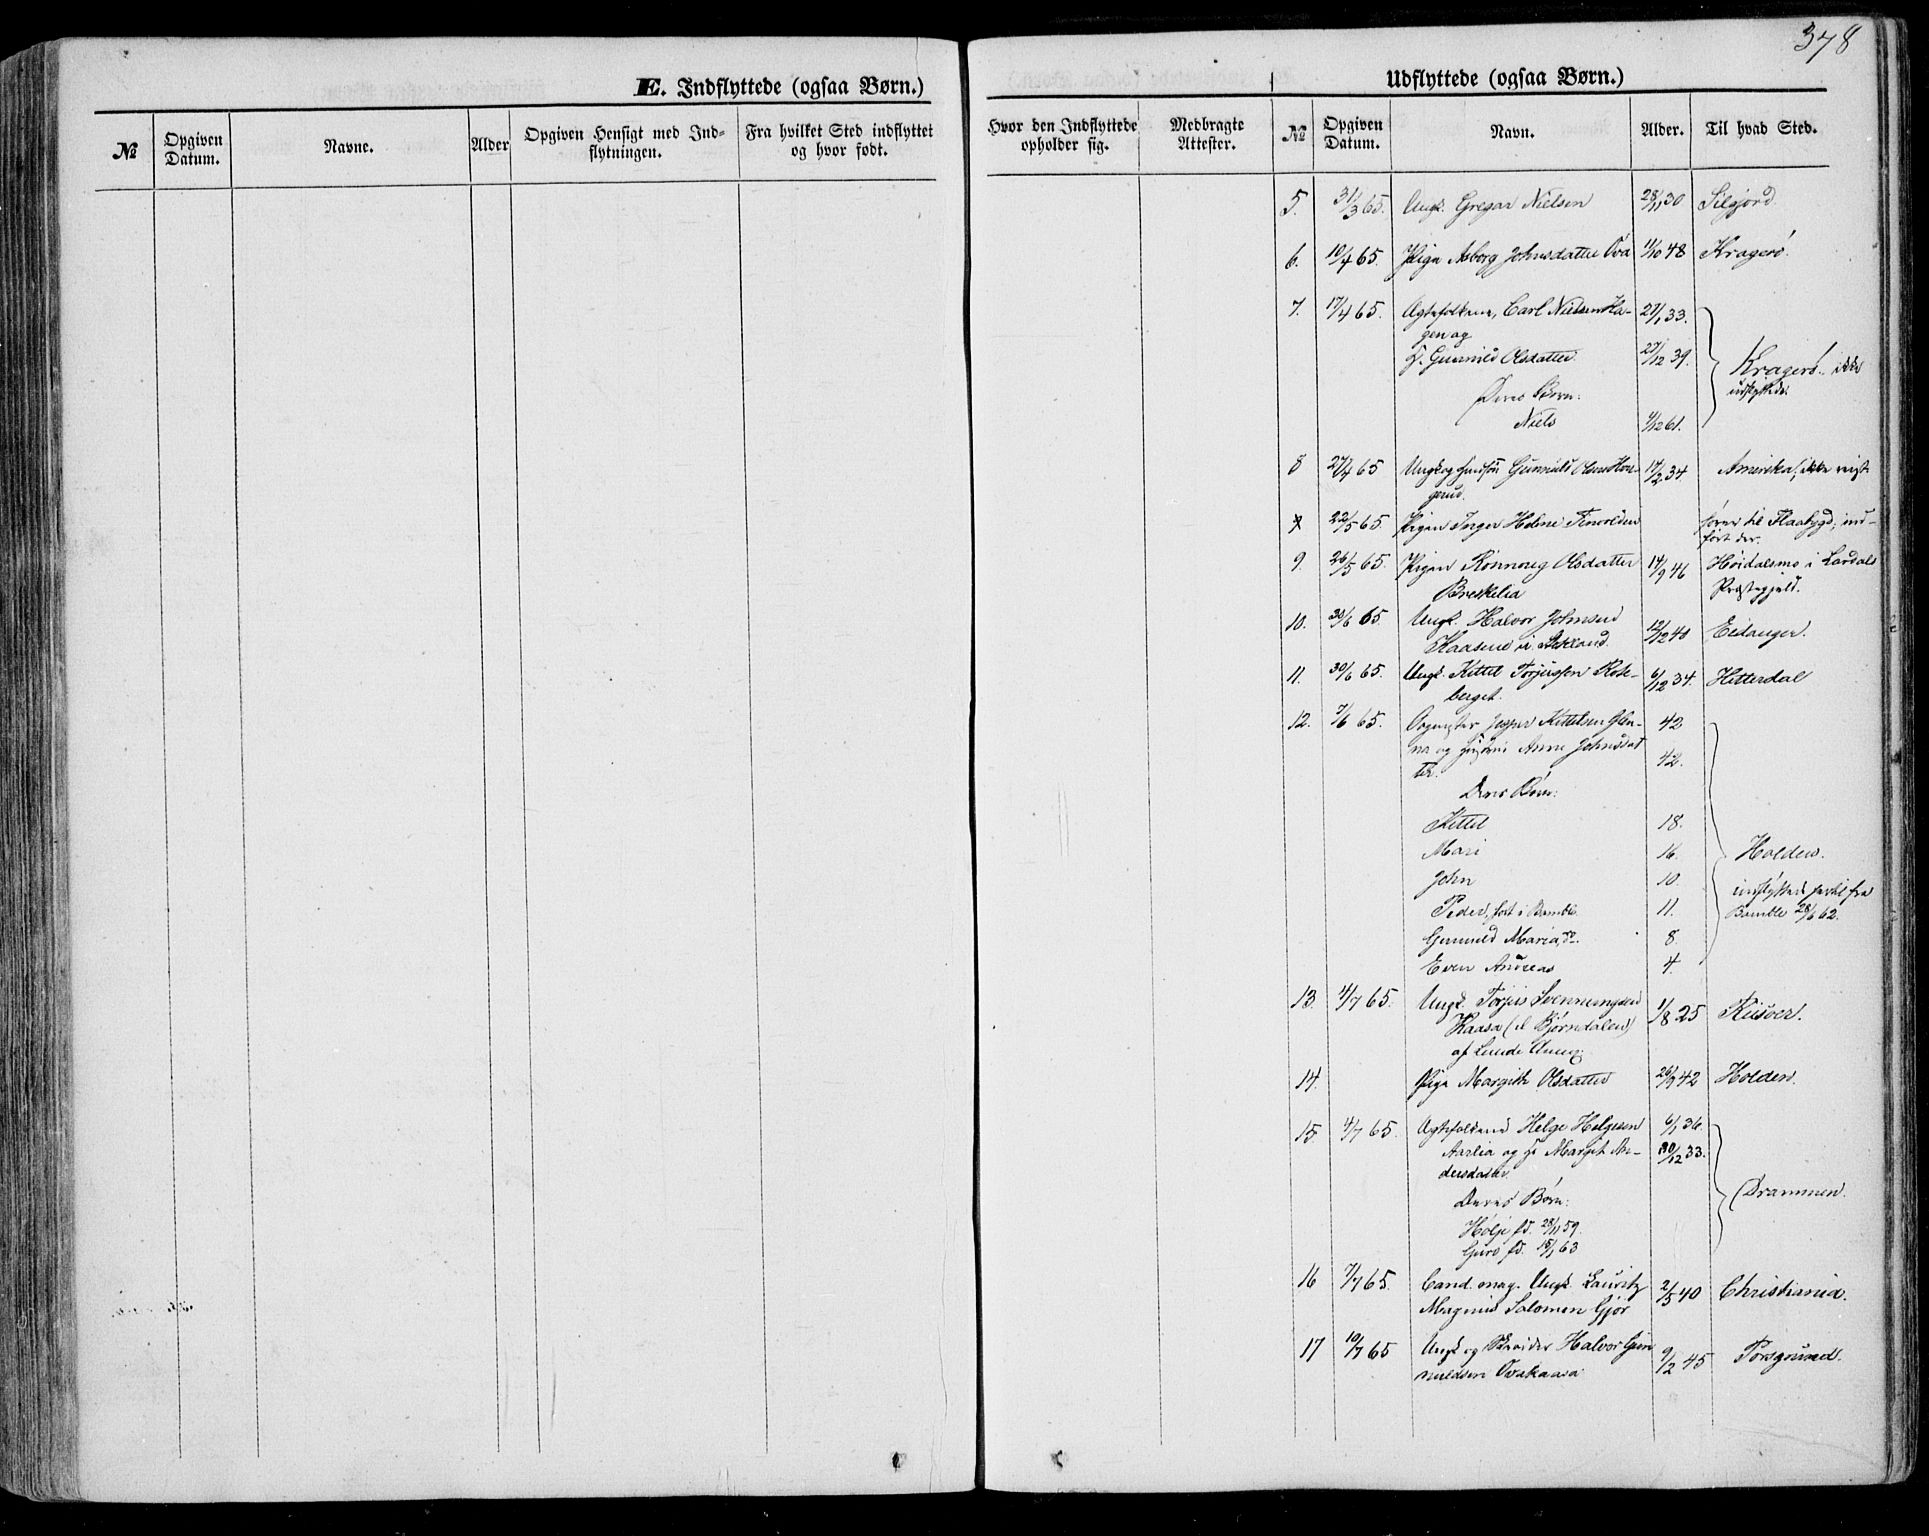 378
E. Indflyttede (ogsaa Børn.)
Udflyttede (ogsaa Børn.)
No
Opgiven Datum.
Navne.
Alder
Opgiven Hensigt med Indflytningen.
Fra hvilket Sted indflyttet og hvor født.
Hvor den Indflyttede opholder sig.
Medbragte Attester.
No
Opgiven Datum.
Navn.
Alder.
Til hvad Sted.
5. 31/3 65. Ungk. Gregar Nielsen 28/11 30 Silgjord.
6. 10/4 65. Pige Asborg Johnsdatter Ova 1/10 48 Kragerö.
7. 17/4 65. Ægtefolkene, Carl Nielsen Ha- 27/1 33.
gen og
H. Gunnild Olsdatter 27/12 39. Kragerö. ikke
Deres Børn: udflyttede.
Niels 4/12 61.
8 27/4 65 Ungk og Gunnuld Olsen Hau- 14/2 34. Amerika, ikke reist
gerud.
22/5 65. Pigen Inger Helene til Flaabygd; ind-
ført der.
9. 26/5 65. Pigen Rönnoug Olsdatter 14/9 46 Höidalsmo i Lardals
Breskelia Præstegjeld.
10. 30/6 65 Ungk. Halvor Johnsen 12/12 40 Eidanger.
Kaasene i
11. 30/6 65. Ungk. Kittel Torjussen Rose- 6/12 34. Hitterdal
berget.
12. 7/6 65. Jesper Kittelsen Glen- 42
na og Hustru Anne Johnsdat 42.
ter.
Deres Børn:
Kittel 18.
Mari 16. Holden.
John 10. indflyttede hertil fra
Peder, født i Bamble. 11. Bamble 28/6 62.
Gunnild Maria, do. 8.
Even Andreas 4.
13. 4/7 65. Ungk. Torjus Svennungsen 1/8 25 Riisøer.
Kaasa (el Bjørndalen)
af Lunde Annex
14. Pige Margith Olsdatter 26/9 42 Holden.
15. 4/7 65. Ægtefolkene Helge Helgesen 6/1 36.
Aarlia og H. Margit An- 30/12 33.
dersdatter
Deres Børn: Drammen.
Hølje fd. 28/11 59.
Guro fd. 15/1 63
16 7/7 65. Cand. mag. Ungk. Lauritz 2/5 40 Christiania.
Magnus Salomon Gjør
17 10/7 65 Ungk og Skræder Halvor Gun 9/2 45 Porsgrund.
nuldsen Ovakaasa